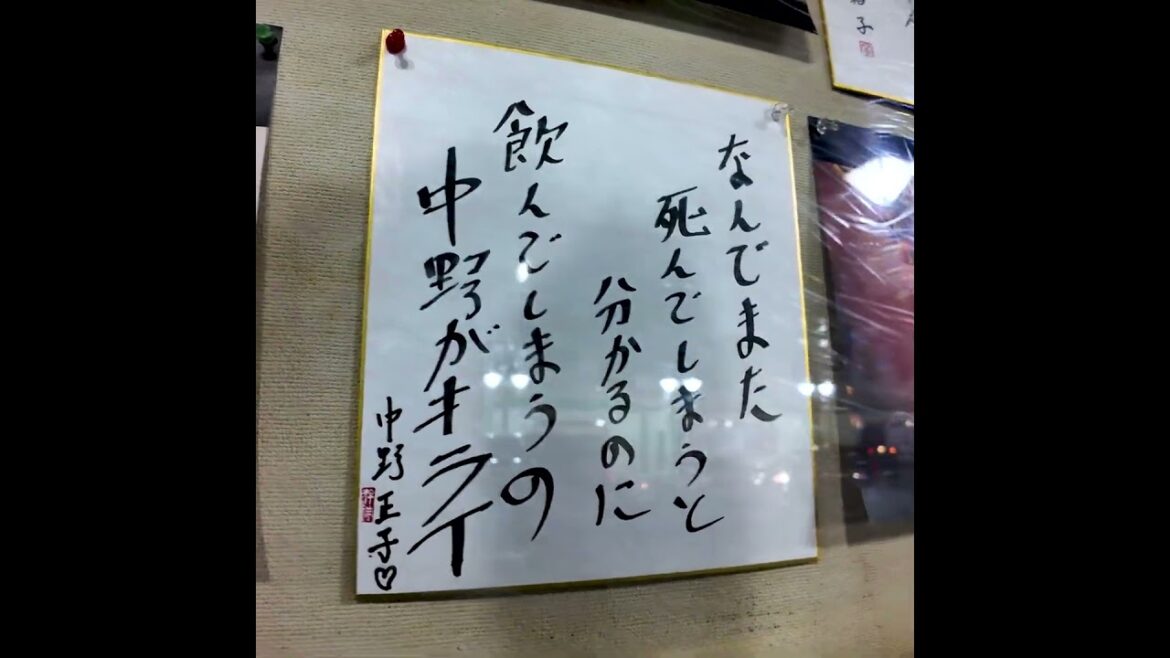 なんでまた
死んでしまうと
分かるのに
飲んでしまうの
中野がキライ
中野正子♡
子